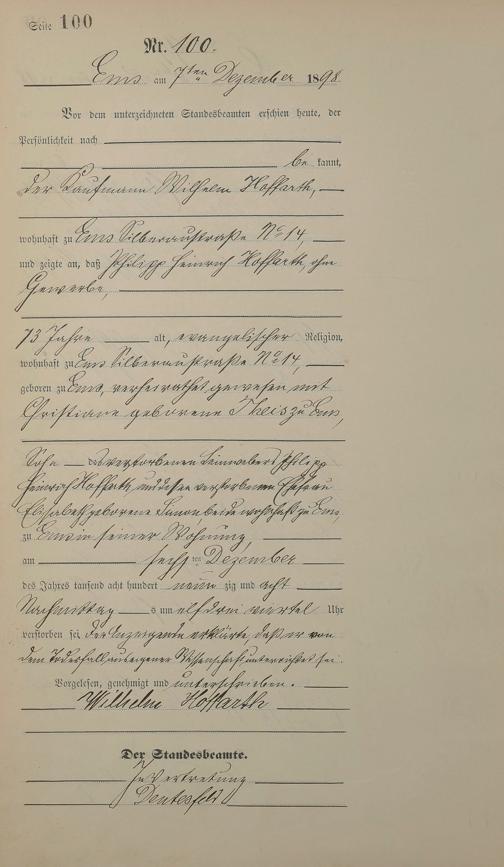 Seite 100
Nr. 100.
Ems am 7ten Dezember 1898
Vor dem unterzeichneten Standesbeamten erschien heute, der
Persönlichkeit nach
be kannt,
der Kaufmann Wilhelm Hoffarth,
wohnhaft zu Ems Silberaustraße No 14,
und zeigte an, daß Philipp Heinrich Hoffarth, ohne
Gewerbe,
73 Jahre alt, evangelischer Religion,
wohnhaft zu Ems Silberaustraße No 14,
geboren zu Ems, verheirathet gewesen mit
Christiane geborene Theis zu Ems,
Sohn des verstorbenen Leinwebers Philipp
Heinrich Hoffarth und dessen verstorbenen Ehefrau
Elisabeth geborene beide wohnhaft zu Ems
zu Ems in seiner Wohnung,
am sechsten Dezember
des Jahres tausend acht hundert neun zig und acht
Nachmittags um elf drei viertel Uhr
verstorben sei, der Anzeigende erklärte, daß er von
dem Todesfall aus eigener Wissenschaft unterrichtet sei.
Vorgelesen, genehmigt und unterschrieben.
Wilhelm Hoffarth
Der Standesbeamte.
In Vertretung